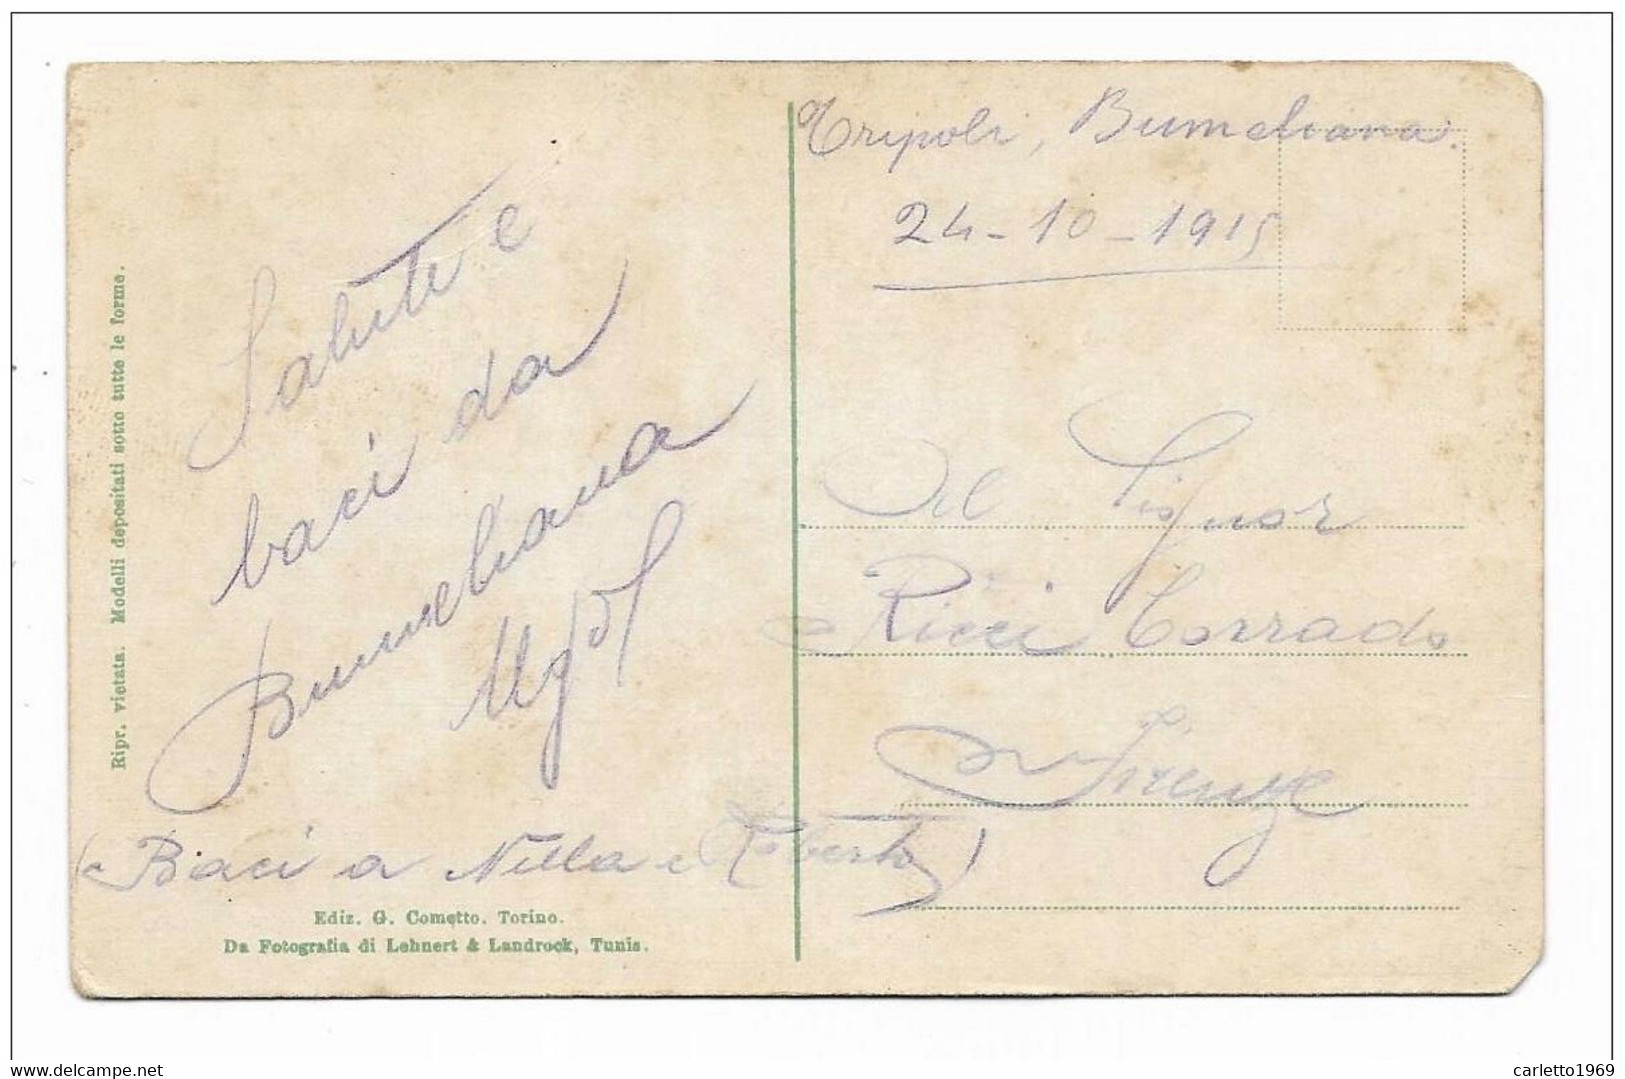 Tripoli, Bumeliana.
24-10-1915
Saluti e
baci da
Bumeliana
(Baci a Nella e Roberto)
Al Signor
Ricci Corrado
Firenze
Ripr. vietata. Modelli depositati sotto tutte le forme.
Ediz. G. Cometto. Torino.
Da Fotografia di Lehnert & Landrock, Tunis.
www.delcampe.net
carletto1969